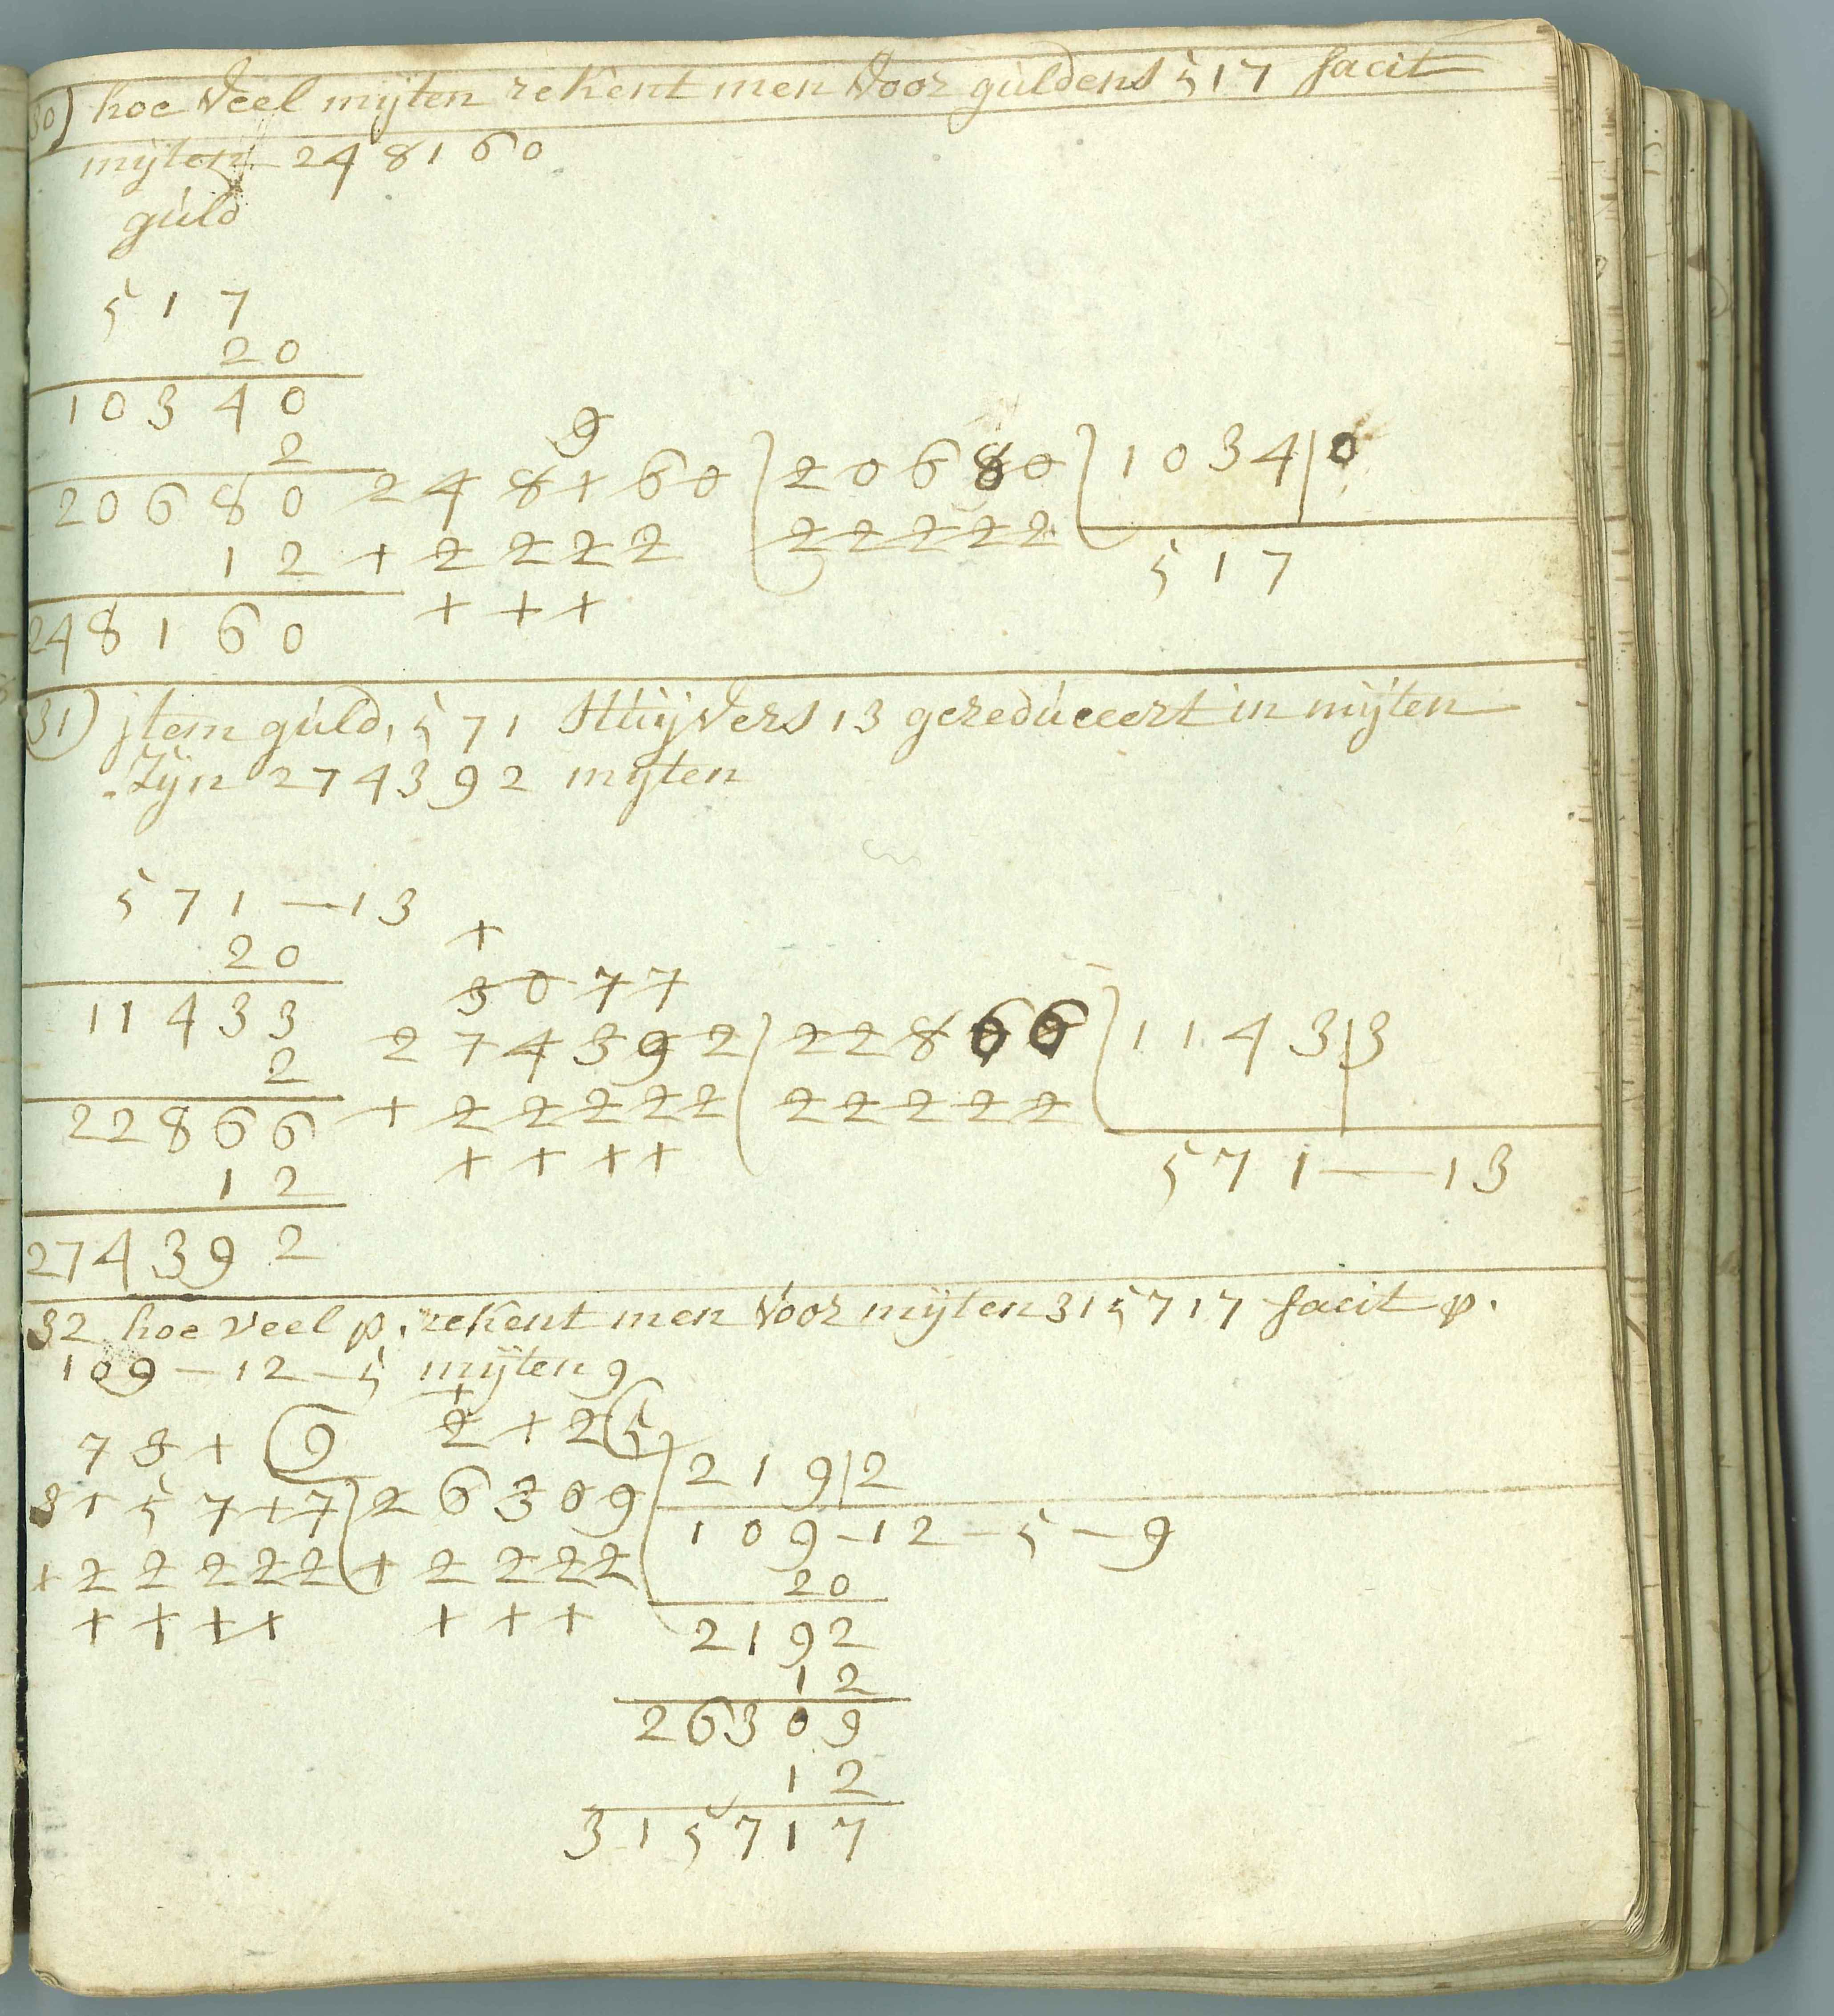 30) hoe veel mijten rekent men voor guldens 517 facit
mijten 248160
guld
517
20
10340
2
20680
12
248160
9
248160 20680 1034|0
+2222 22222 517
+++
31) jtem guld, 571 Stuijvers 13 gereduceert in mijten
Zijn 274392 mijten
571—13
20
11433
2
22866
12
274392
+
3077
274392 22866 1143|3
+22222 22222
++++
571—13
32 hoe veel p. rekent men voor mijten 315717 facit p.
109–12–5 mijten 9
+
73+ 9 2+2 5
315717 26309 219|2
+22222 +2222 109–12–5–9
++++ +++
20
2192
12
26309
12
315717